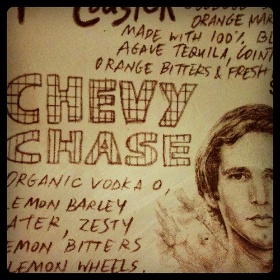 ORANGE MAR
MADE WITH 100% BL
AGAVE TEQUILA, COINT
ORANGE BITTERS & FRESH
CHEVY
CHASE
ORGANIC VODKA O,
LEMON BARLEY
ATER, ZESTY
EMON BITTERS
LEMON WHEELS.